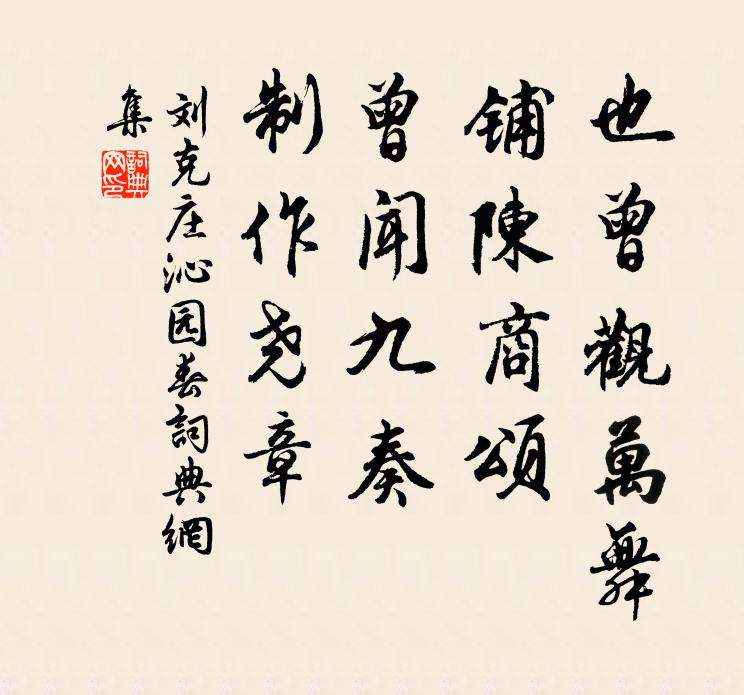 也曾觀萬舞
铺陳商頌
曾闻九奏
制作尧章
刘克庄沁园春詞典網
集
詞典
网印